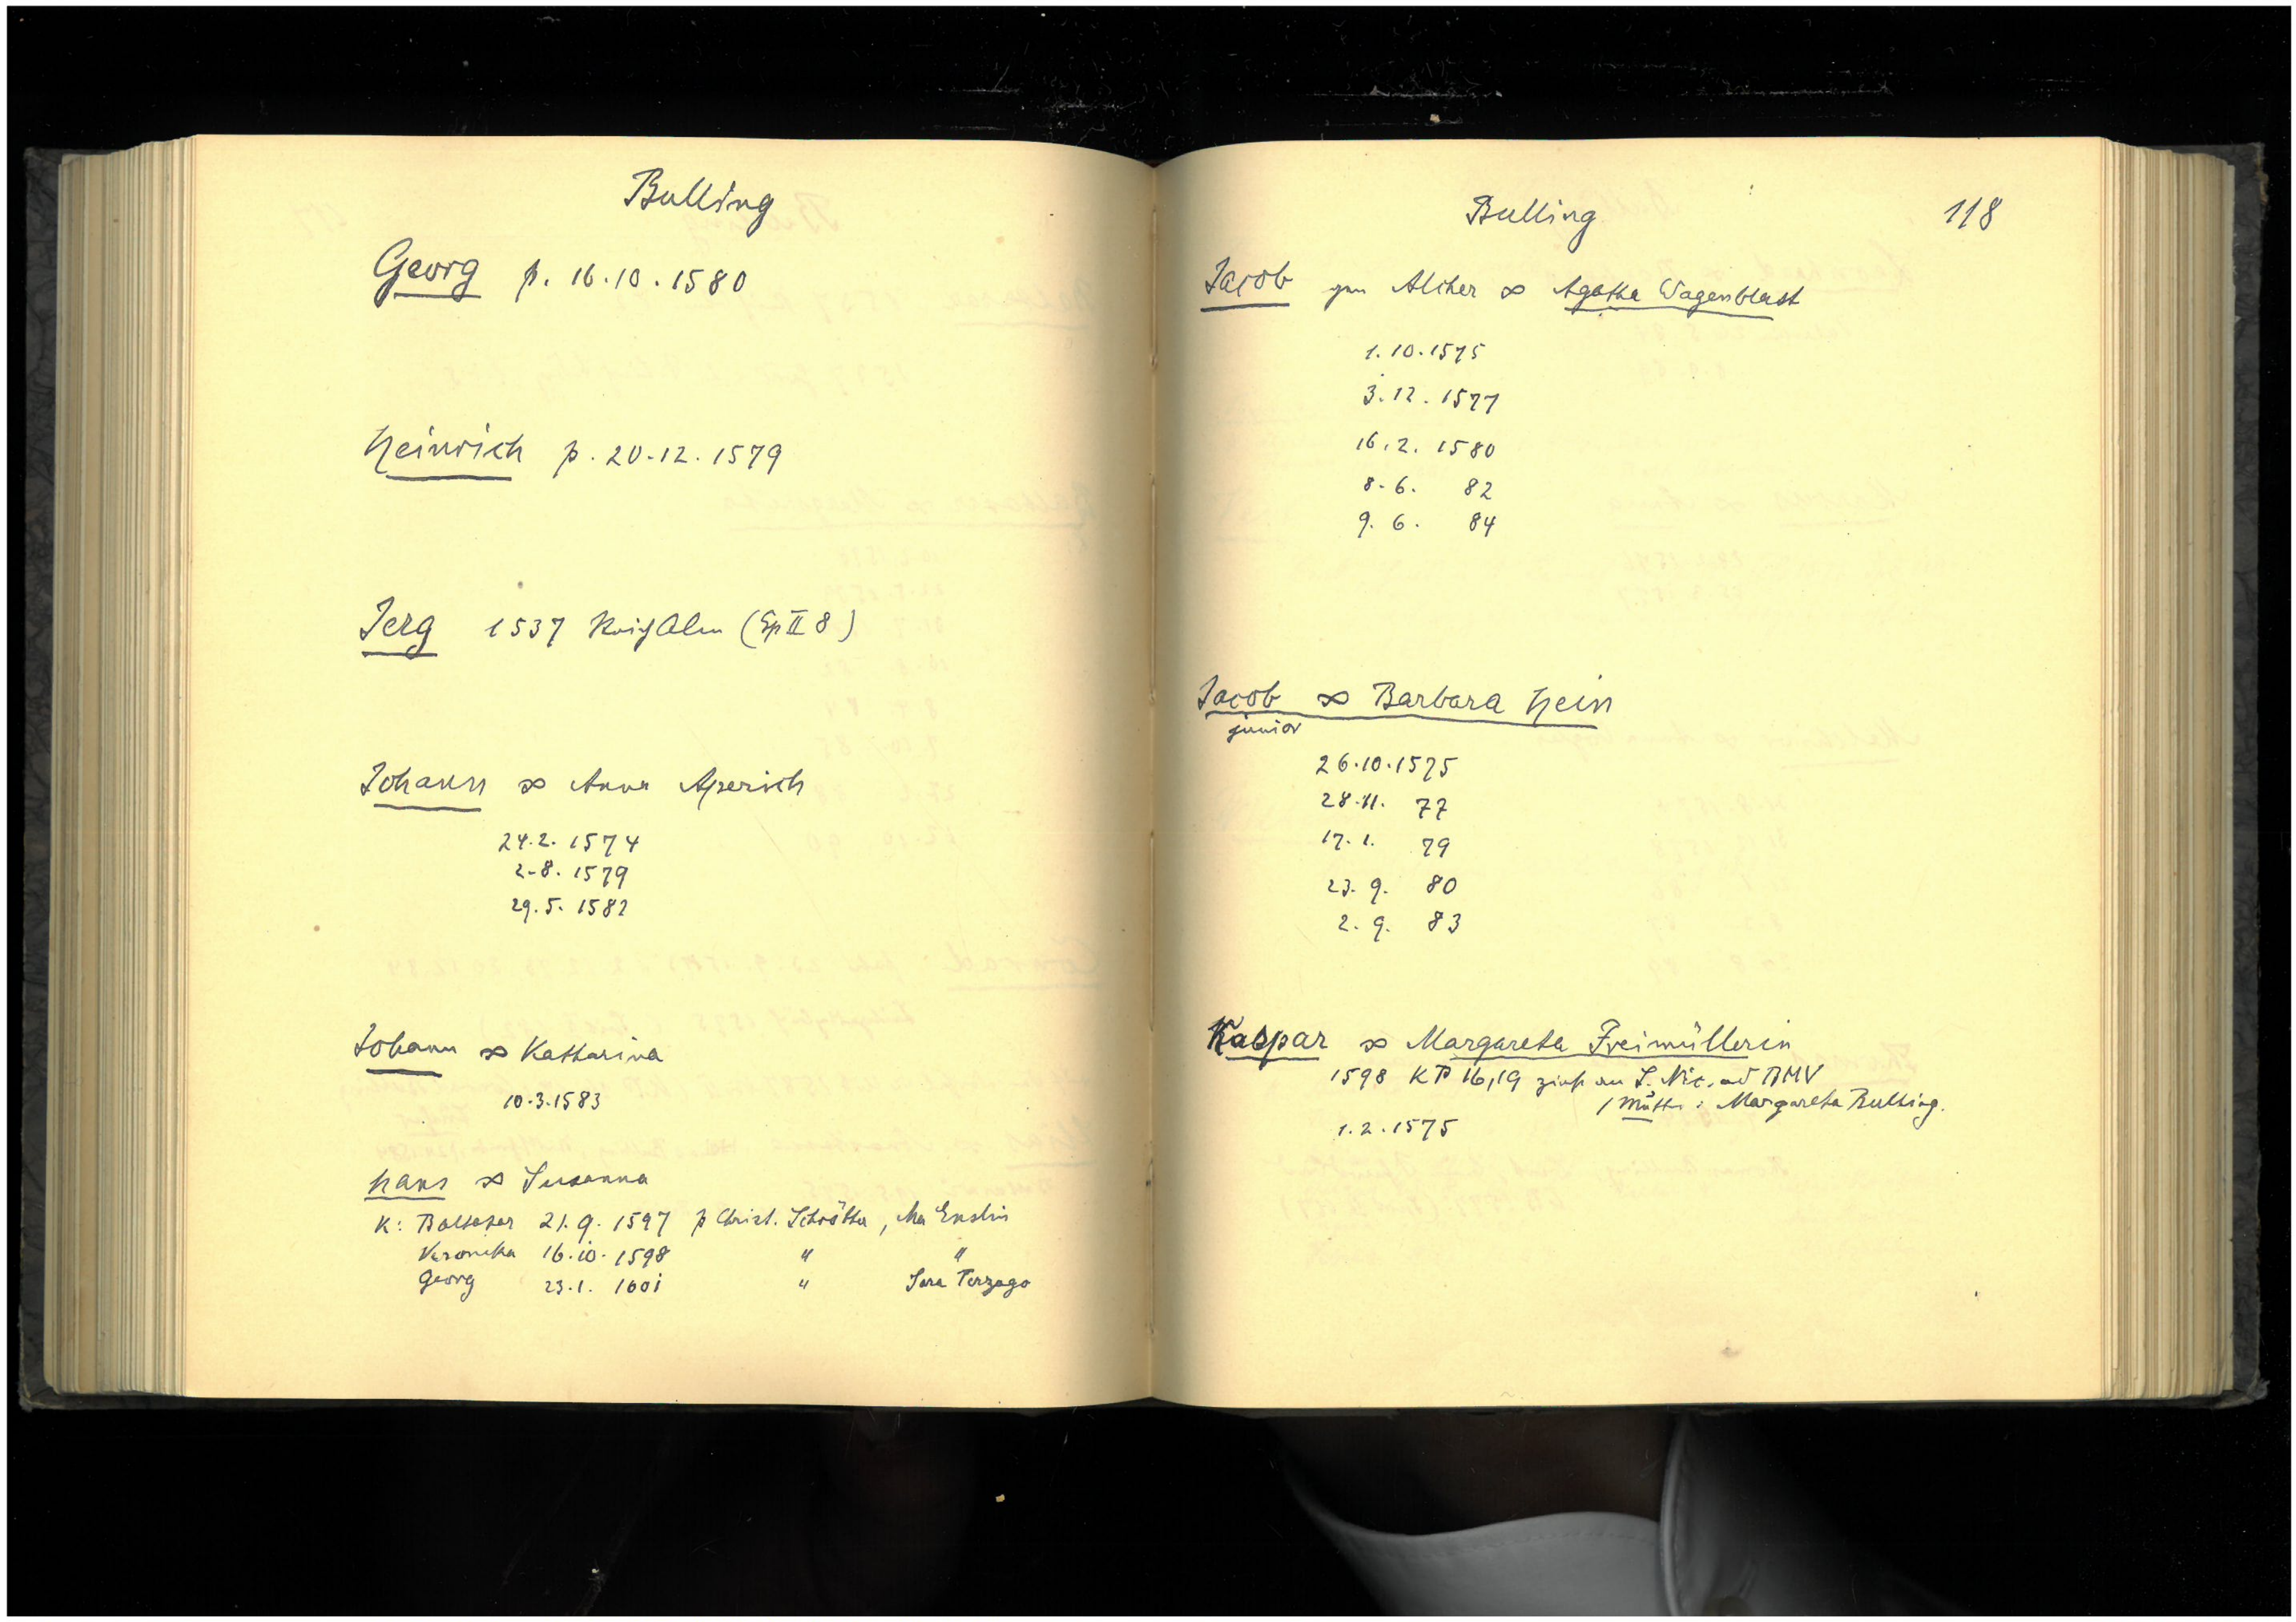 Bulling
Georg p. 16.10.1580
Heinrich p. 20.12.1579
Jerg 1537 (Sp II 8)
Johann ∞ Anna Aperich
24.2. 1574
2.8. 1579
29.5. 1582
Johann ∞ Katharina
10.3.1583
Hans ∞ Susanna
K: Baltasar 21.9. 1597 p Christ. Schrötter,
Veronika 16.10. 1598 " "
Georg 23.1. 1601 " Sara Terzago
Bulling 118
Jacob gen ∞ Agatha Wagenblast
1.10.1575
3.12.1577
16.2. 1580
8.6. 82
9.6. 84
Jacob ∞ Barbara Hein
junior
26.10.1575
28.11. 77
17.1. 79
23.9. 80
2.9. 83
Kaspar ∞ Margareta Freimüllerin
1598 KP 16,19 zinst an S. Nic. ad BMV
/ Mutter: Margareta Bulling.
1.2.1575